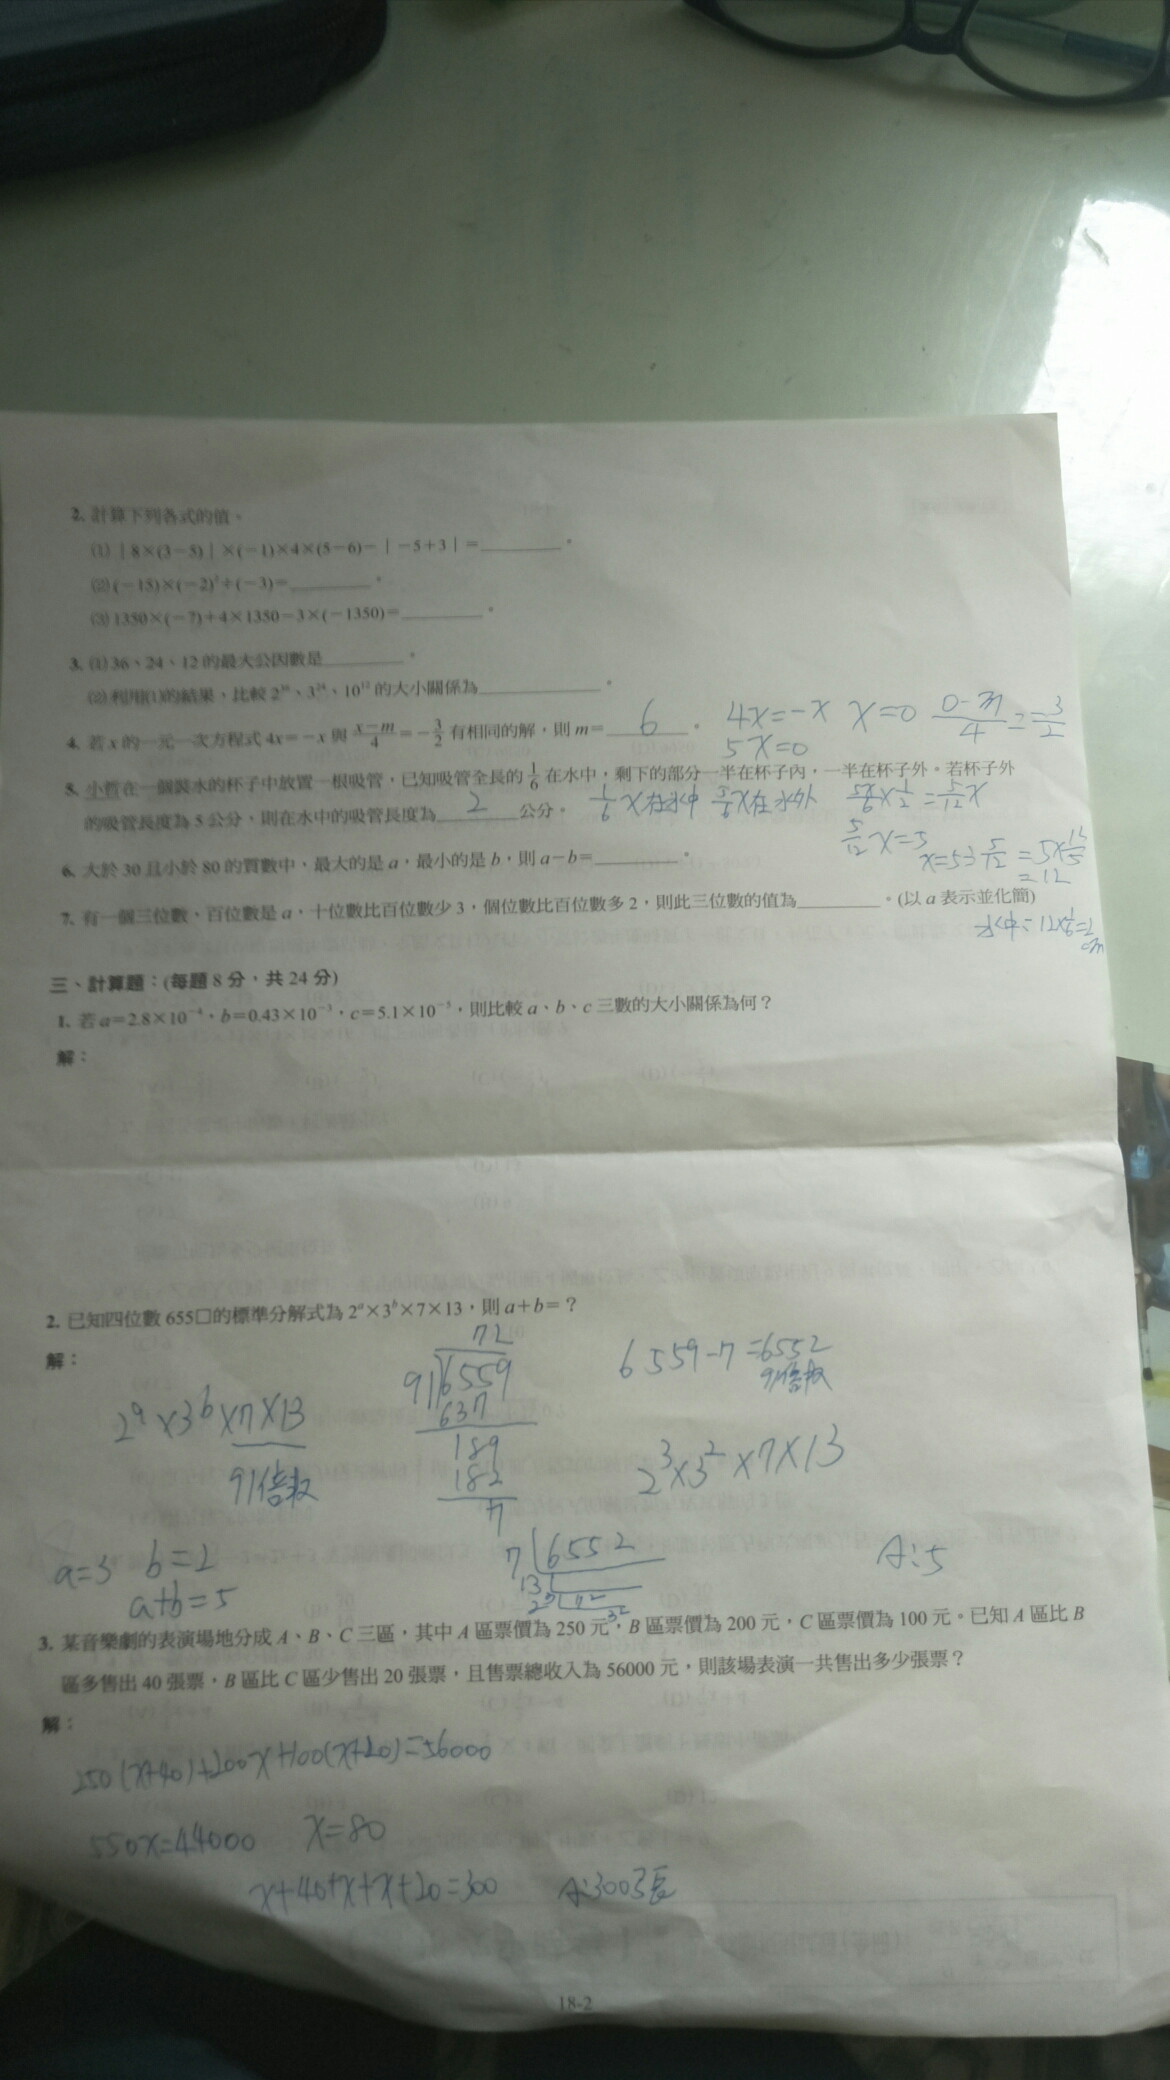 2. 計算下列各式的值。
(1) | 8×(3-5) | ×(-1)×4×(5-6)- | -5+3 | =________。
(2) (-15)×(-2)²÷(-3)=________。
(3) 1350×(-7)+4×1350-3×(-1350)=________。
3. (1) 36、24、12 的最大公因數是________。
(2) 利用(1)的結果,比較 2³⁶、3²⁴、10¹² 的大小關係為________。
4. 若 x 的一元一次方程式 4x=-x 與 (x-m)/4=-3/2 有相同的解,則 m=6。 4x=-x x=0 (0-m)/4=-3/2
5x=0
5. 小哲在一個裝水的杯子中放置一根吸管,已知吸管全長的 1/6 在水中,剩下的部分一半在杯子內,一半在杯子外。若杯子外
的吸管長度為 5 公分,則在水中的吸管長度為2公分。 1/6 x在水中 5/6 x在水外 5x/6×1/2=5/12 x
5/12 x=5
x=5÷5/12=5×12/5
=12
6. 大於 30 且小於 80 的質數中,最大的是 a,最小的是 b,則 a-b=________。
7. 有一個三位數,百位數是 a,十位數比百位數少 3,個位數比百位數多 2,則此三位數的值為________。(以 a 表示並化簡)
水中=12×1/6=2
cm
三、計算題:(每題 8 分,共 24 分)
1. 若 a=2.8×10⁻⁴,b=0.43×10⁻³,c=5.1×10⁻⁵,則比較 a、b、c 三數的大小關係為何?
解:
2. 已知四位數 655□的標準分解式為 2ᵃ×3ᵇ×7×13,則 a+b=?
解:
72
91 6559
637
189
182
7
6559-7=6552
91倍數
2ᵃ×3ᵇ×7×13
91倍數
2³×3²×7×13
7 6552
13
2³ 72
3²
a=3 b=2
a+b=5
A:5
3. 某音樂劇的表演場地分成 A、B、C 三區,其中 A 區票價為 250 元,B 區票價為 200 元,C 區票價為 100 元。已知 A 區比 B
區多售出 40 張票,B 區比 C 區少售出 20 張票,且售票總收入為 56000 元,則該場表演一共售出多少張票?
解:
250(x+40)+200x+100(x+20)=56000
550x=44000 x=80
x+40+x+x+20=300 A:300張
18-2